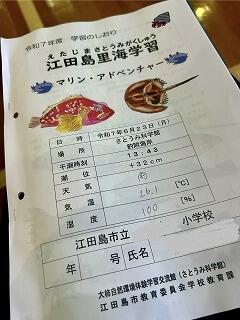 令和7年度 学習のしおり
えたじまさとうみがくしゅう
江田島里海学習
マリン・アドベンチャー
日時 令和7年6月23日(月)
場所 さとうみ科学館 前面海岸
干潮時刻 13:43
潮位 +32cm
天気
気温 26.1 [℃]
湿度 100 [%]
江田島市立 小学校
年 号 氏名
大柿自然環境体験学習交流館(さとうみ科学館)
江田島市教育委員会学校教育課